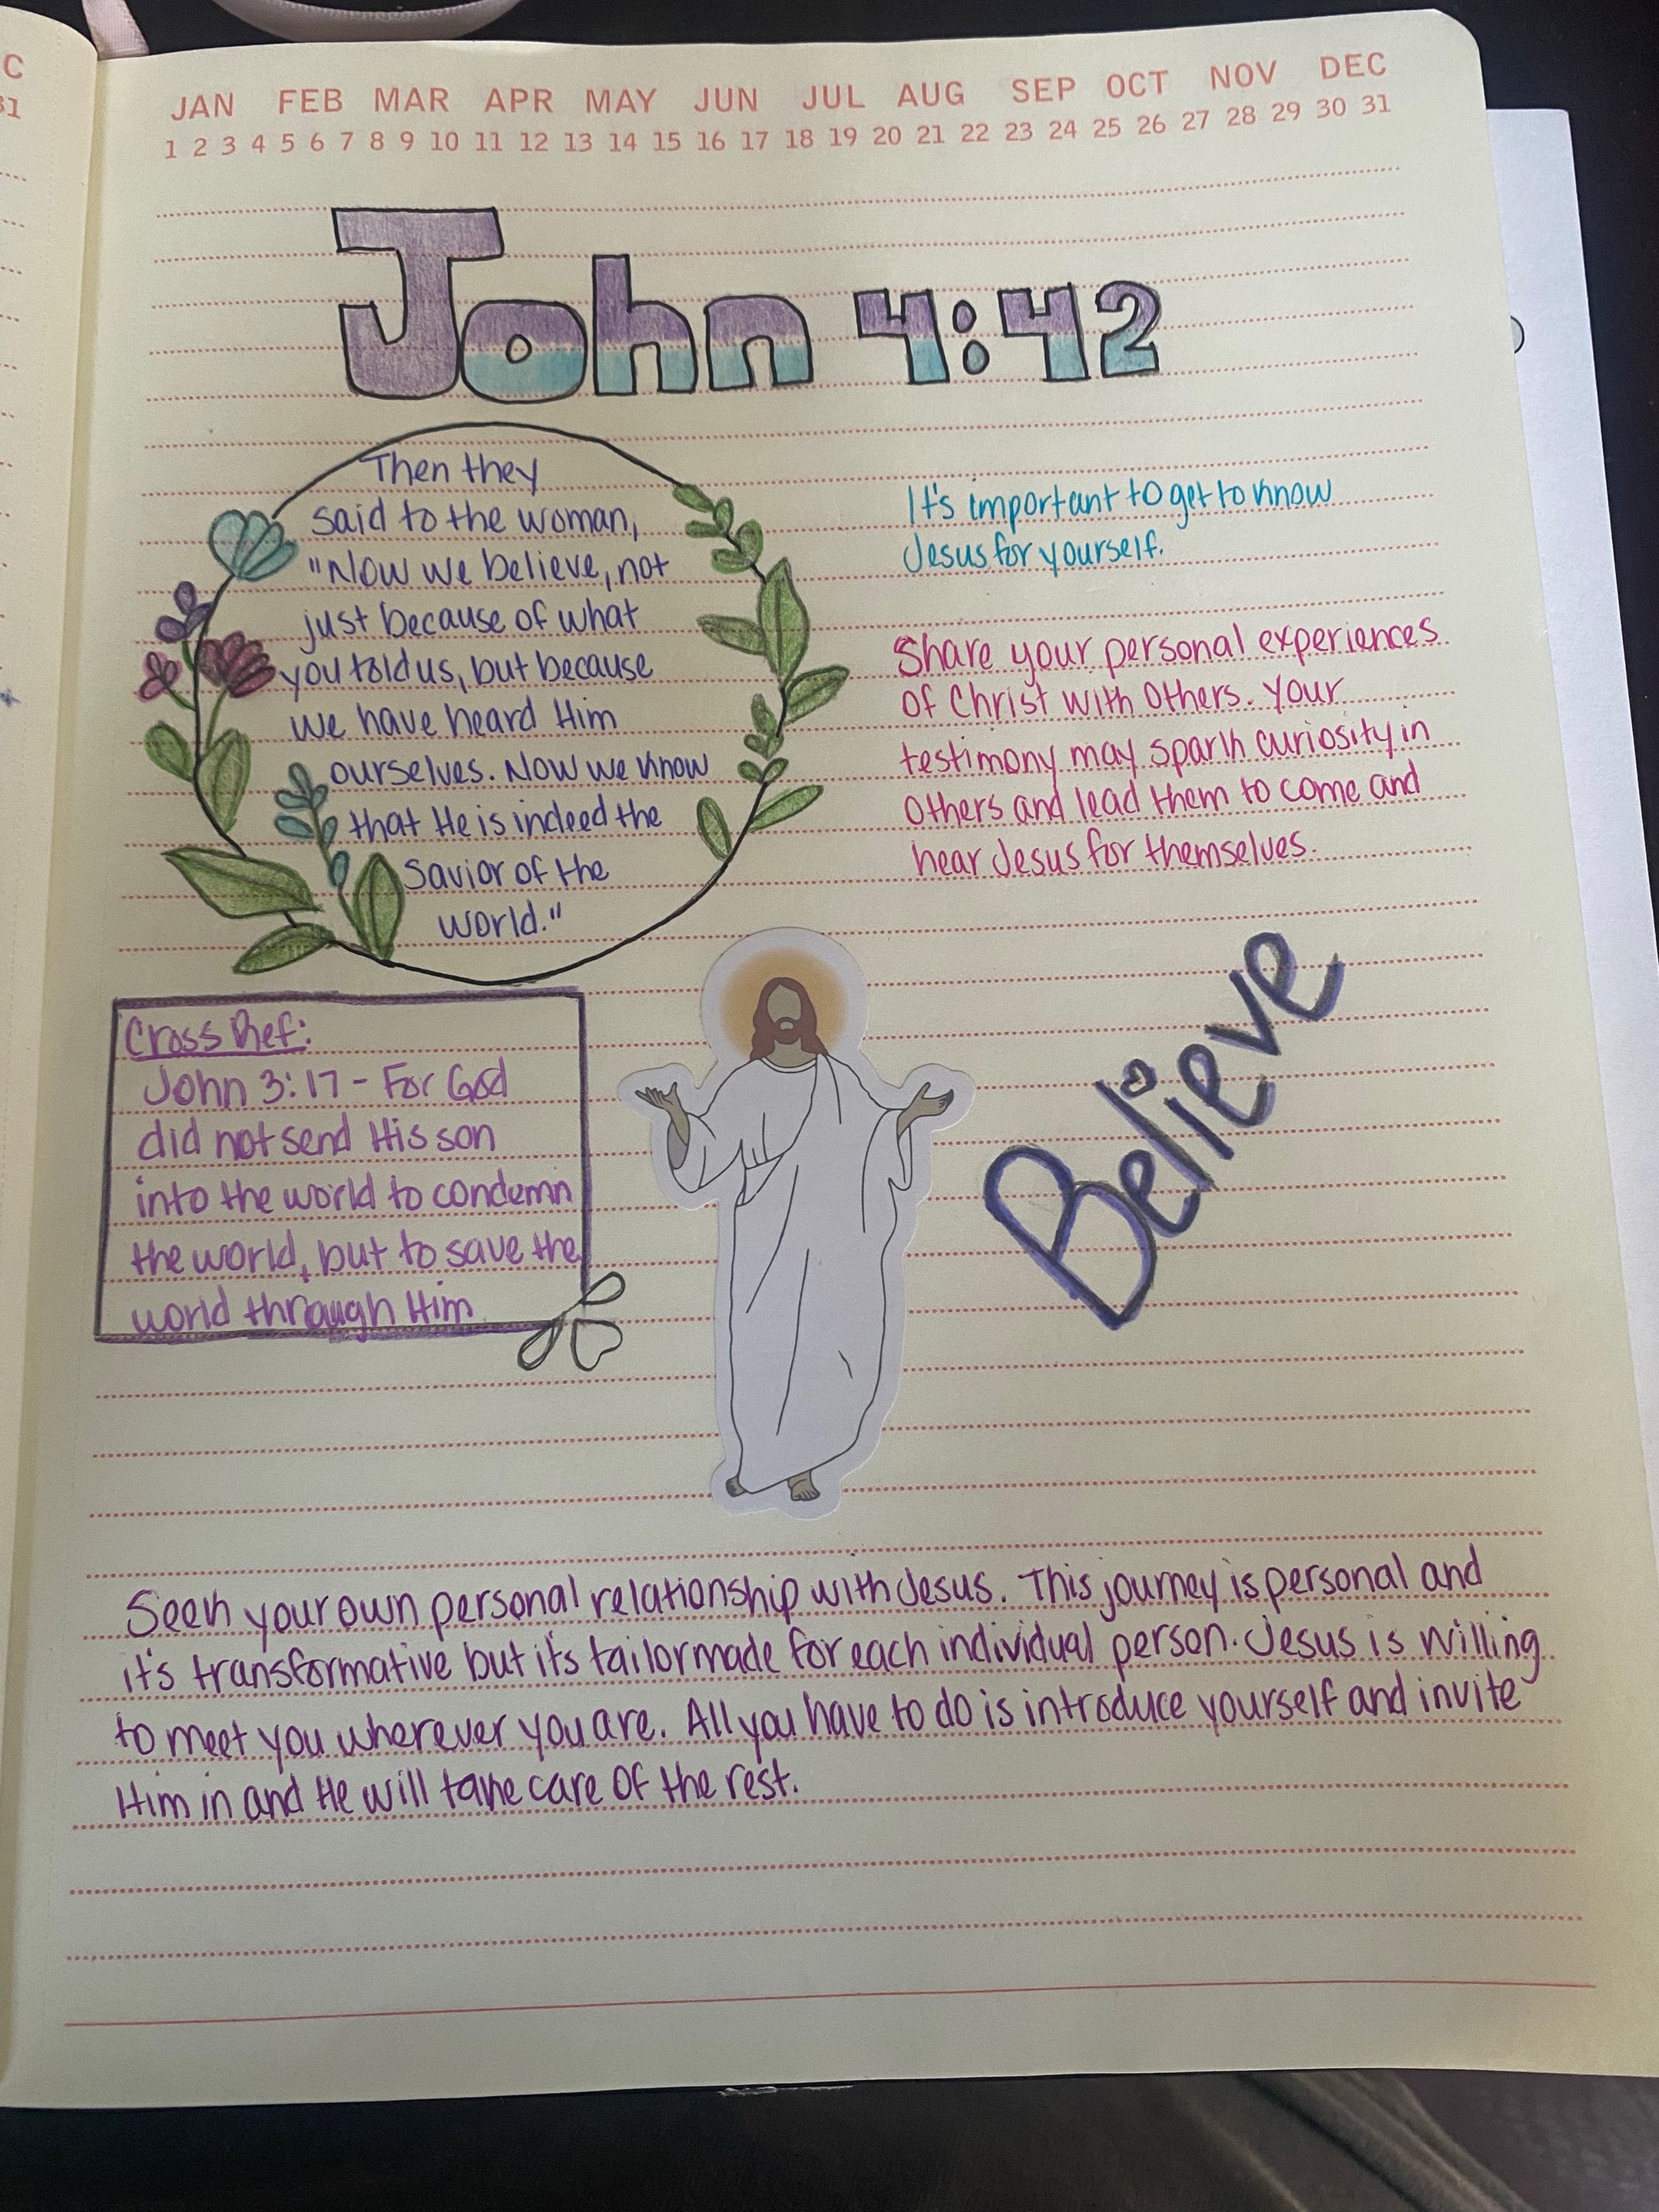 C
31
JAN FEB MAR APR MAY JUN JUL AUG SEP OCT NOV DEC
1 2 3 4 5 6 7 8 9 10 11 12 13 14 15 16 17 18 19 20 21 22 23 24 25 26 27 28 29 30 31
John 4:42
Then they
said to the woman,
"Now we believe, not
just because of what
you told us, but because
we have heard Him
ourselves. Now we know
that He is indeed the
Savior of the
world."
It's important to get to know
Jesus for yourself.
Share your personal experiences
of Christ with others. Your
testimony may spark curiosity in
others and lead them to come and
hear Jesus for themselves.
Cross Ref:
John 3:17 - For God
did not send His son
into the world to condemn
the world, but to save the
world through Him
Believe
Seek your own personal relationship with Jesus. This journey is personal and
it's transformative but it's tailormade for each individual person. Jesus is willing
to meet you wherever you are. All you have to do is introduce yourself and invite
Him in and He will take care of the rest.